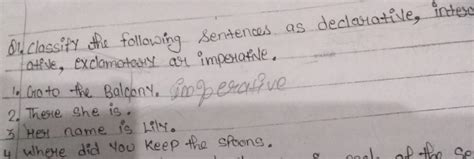 Q1. Classify the following sentences as declarative, interro
ative, exclamatory or imperative.
1. Go to the Balcony. imperative
2. There she is.
3. Her name is Lily.
4. Where did You Keep the spoons.
of the